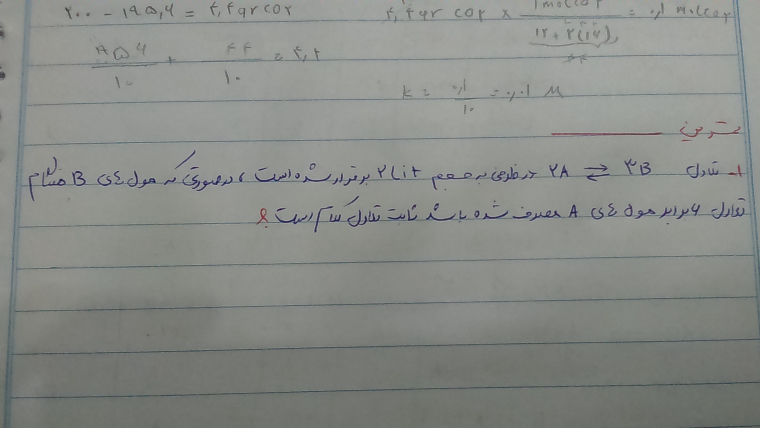 ۲۰۰ - ۱۹۵,۶ = ۴,۴ gr co۲
۴,۴ gr co۲ × 1 mol co۲ / ۱۲ + ۲(۱۶) = ۰,۱ mol co۲
۴۴
/ ۱۰ ۴۴ / ۱۰ = ۴,۴
k = ۰,۱ / ۱۰ = ۰,۰۱ M
تمرین
۱- تعادل ۲A ⇌ ۳B در ظرفی به حجم ۲ Lit برقرار شده است ، درصورتی که مول های B هنگام
تعادل ۶ برابر مول های A مصرف شده باشد ثابت تعادل کدام است ؟